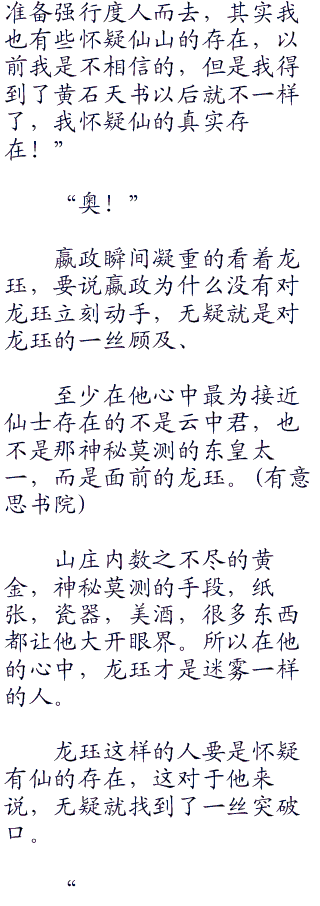 准备强行度人而去，其实我
也有些怀疑仙山的存在，以
前我是不相信的，但是我得
到了黄石天书以后就不一样
了，我怀疑仙的真实存
在！”
“奥！”
嬴政瞬间凝重的看着龙
珏，要说嬴政为什么没有对
龙珏立刻动手，无疑就是对
龙珏的一丝顾及、
至少在他心中最为接近
仙士存在的不是云中君，也
不是那神秘莫测的东皇太
一，而是面前的龙珏。(有意
思书院)
山庄内数之不尽的黄
金，神秘莫测的手段，纸
张，瓷器，美酒，很多东西
都让他大开眼界。所以在他
的心中，龙珏才是迷雾一样
的人。
龙珏这样的人要是怀疑
有仙的存在，这对于他来
说，无疑就找到了一丝突破
口。
“